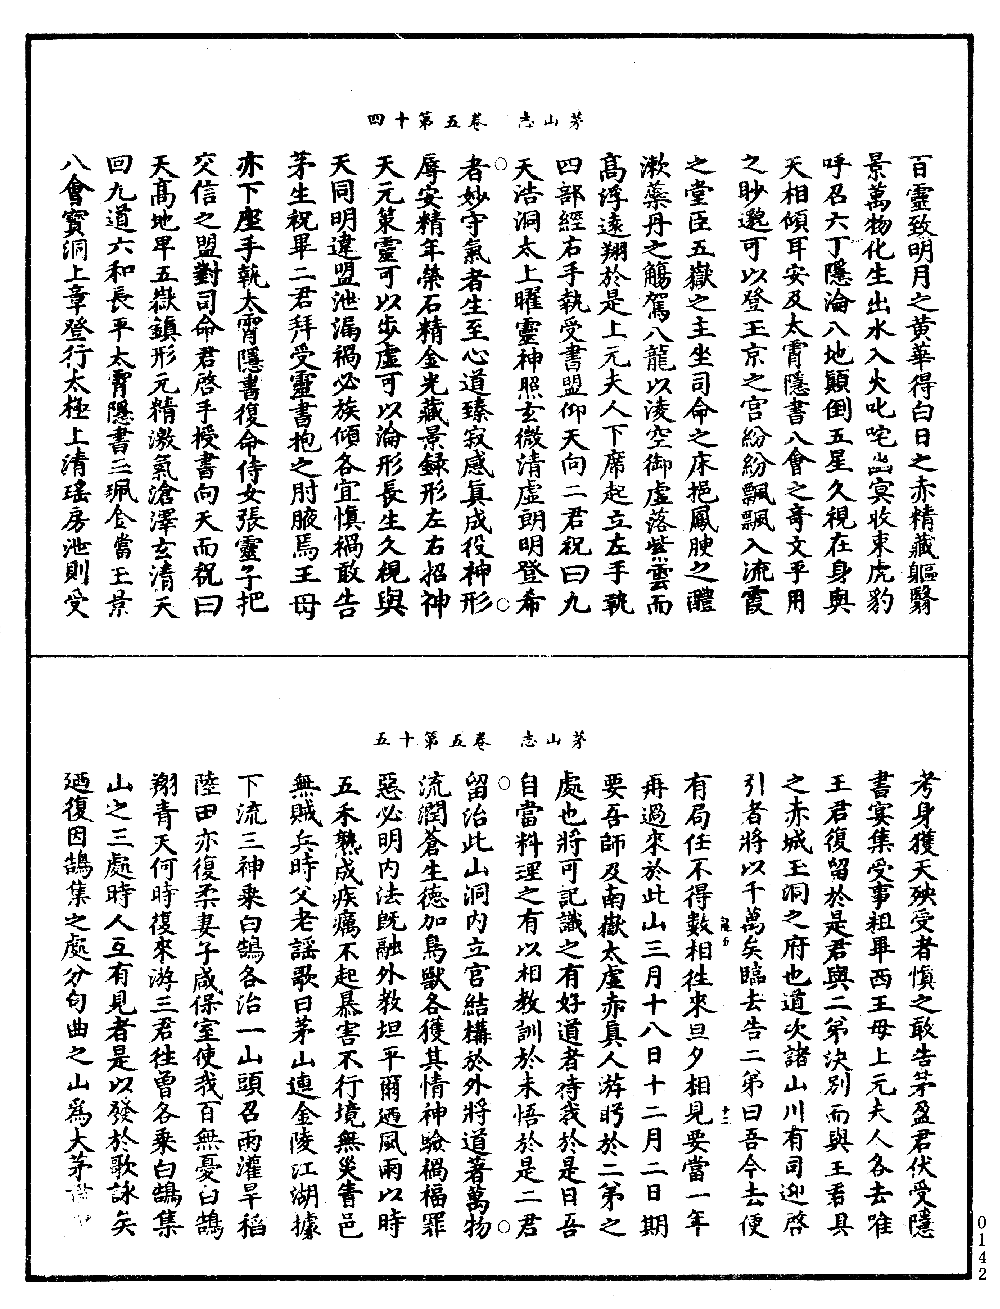 茅山志　卷五第十四
百靈致明月之黄華得白日之赤精藏軀翳
景萬物化生出水入火叱咤幽㝠收束虎豹
呼召六丁隱淪八地顛倒五星久視在身與
天相傾耳安及太霄隱書八會之奇文乎用
之眇邈可以登玉京之宫紛紛飄飄入流霞
之堂臣五嶽之主坐司命之床挹鳳腴之醴
漱藥丹之觴駕八龍以淩空御虚落紫雲而
髙浮遠翔於是上元夫人下席起立左手執
四部經右手執受書盟仰天向二君祝曰九
天浩洞太上曜靈神照玄微清虚朗明登希
者妙守氣者生至心道臻寂感真成役神形
辱安精年榮石精金光藏景録形左右招神
天元策靈可以歩虚可以淪形長生久視與
天同明違盟泄漏禍必族傾各宜慎禍敢告
茅生祝畢二君拜受靈書抱之肘腋焉王母
亦下座手執太霄隱書復命侍女張靈子把
交信之盟對司命君啓手授書向天而祝曰
天髙地卑五嶽鎮形元精激氣滄澤玄清天
回九道六和長平太霄隱書三珮金璫玉景
八會寳洞上章登行太極上清瑶房泄則受
茅山志　卷五第十五
考身獲天殃受者慎之敢告茅盈君伏受隱
書宴集受事粗畢西王母上元夫人各去唯
王君復留於是君與二弟決别而與王君具
之赤城玉洞之府也道次諸山川有司迎啓
引者將以千萬矣臨去告二弟曰吾今去便
有局任不得數相往來旦夕相見要當一年
再過來於此山三月十八日十二月二日期
要吾師及南嶽太虚赤真人游盻於二弟之
處也將可記識之有好道者待我於是日吾
自當料理之有以相教訓於未悟於是二君
留治此山洞内立宫結構於外將道著萬物
流潤蒼生德加鳥獸各獲其情神驗禍福罪
惡必明内法既融外教坦平爾廼風雨以時
五禾熟成疾癘不起暴害不行境無災眚邑
無賊兵時父老謡歌曰茅山連金陵江湖據
下流三神乘白鵠各治一山頭召雨灌旱稻
陸田亦復柔妻子咸保室使我百無憂白鵠
翔青天何時復來游三君往曽各乘白鵠集
山之三處時人互有見者是以發於歌詠矣
廼復因鵠集之處分句曲之山爲大茅
0142